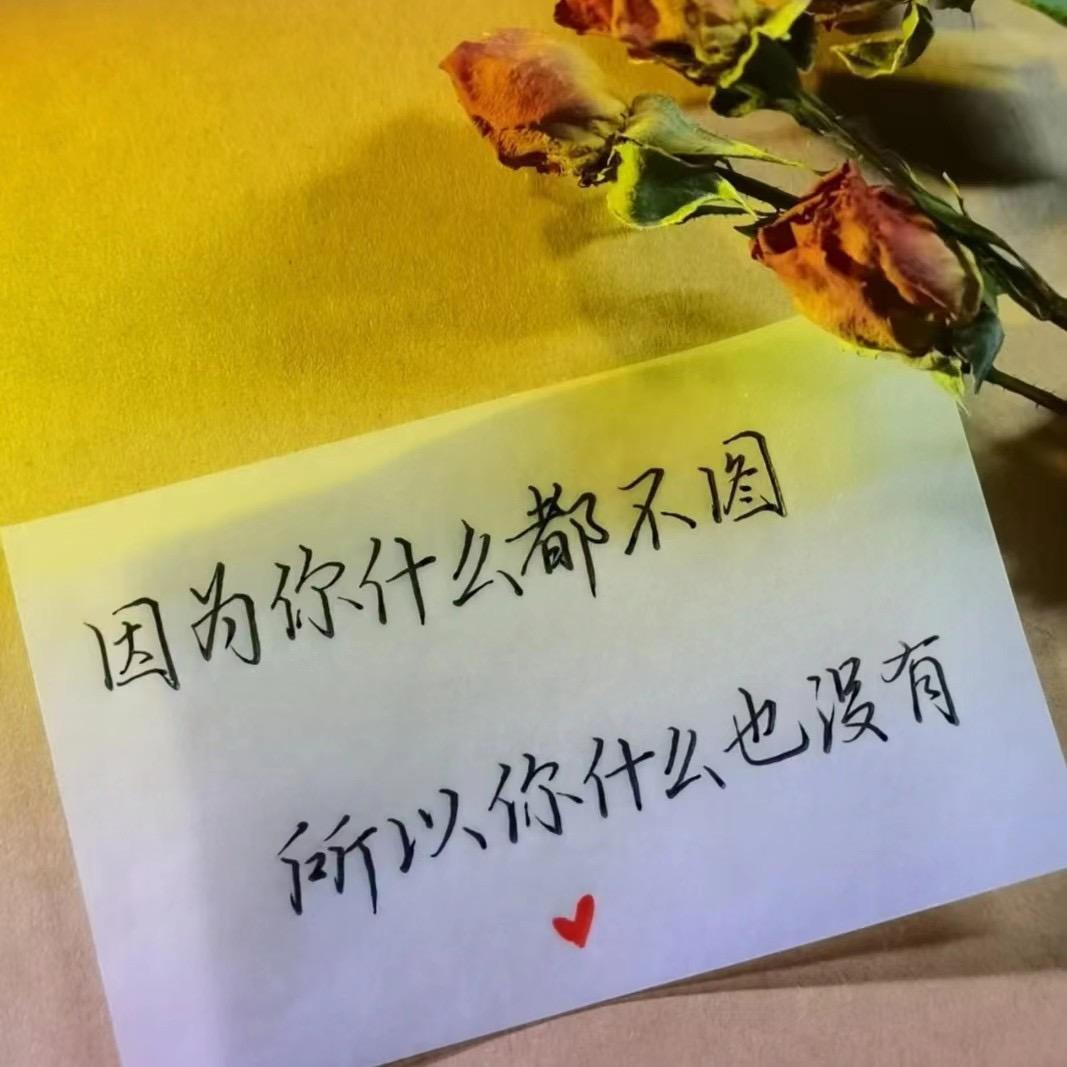 因为你什么都不图
所以你什么也没有